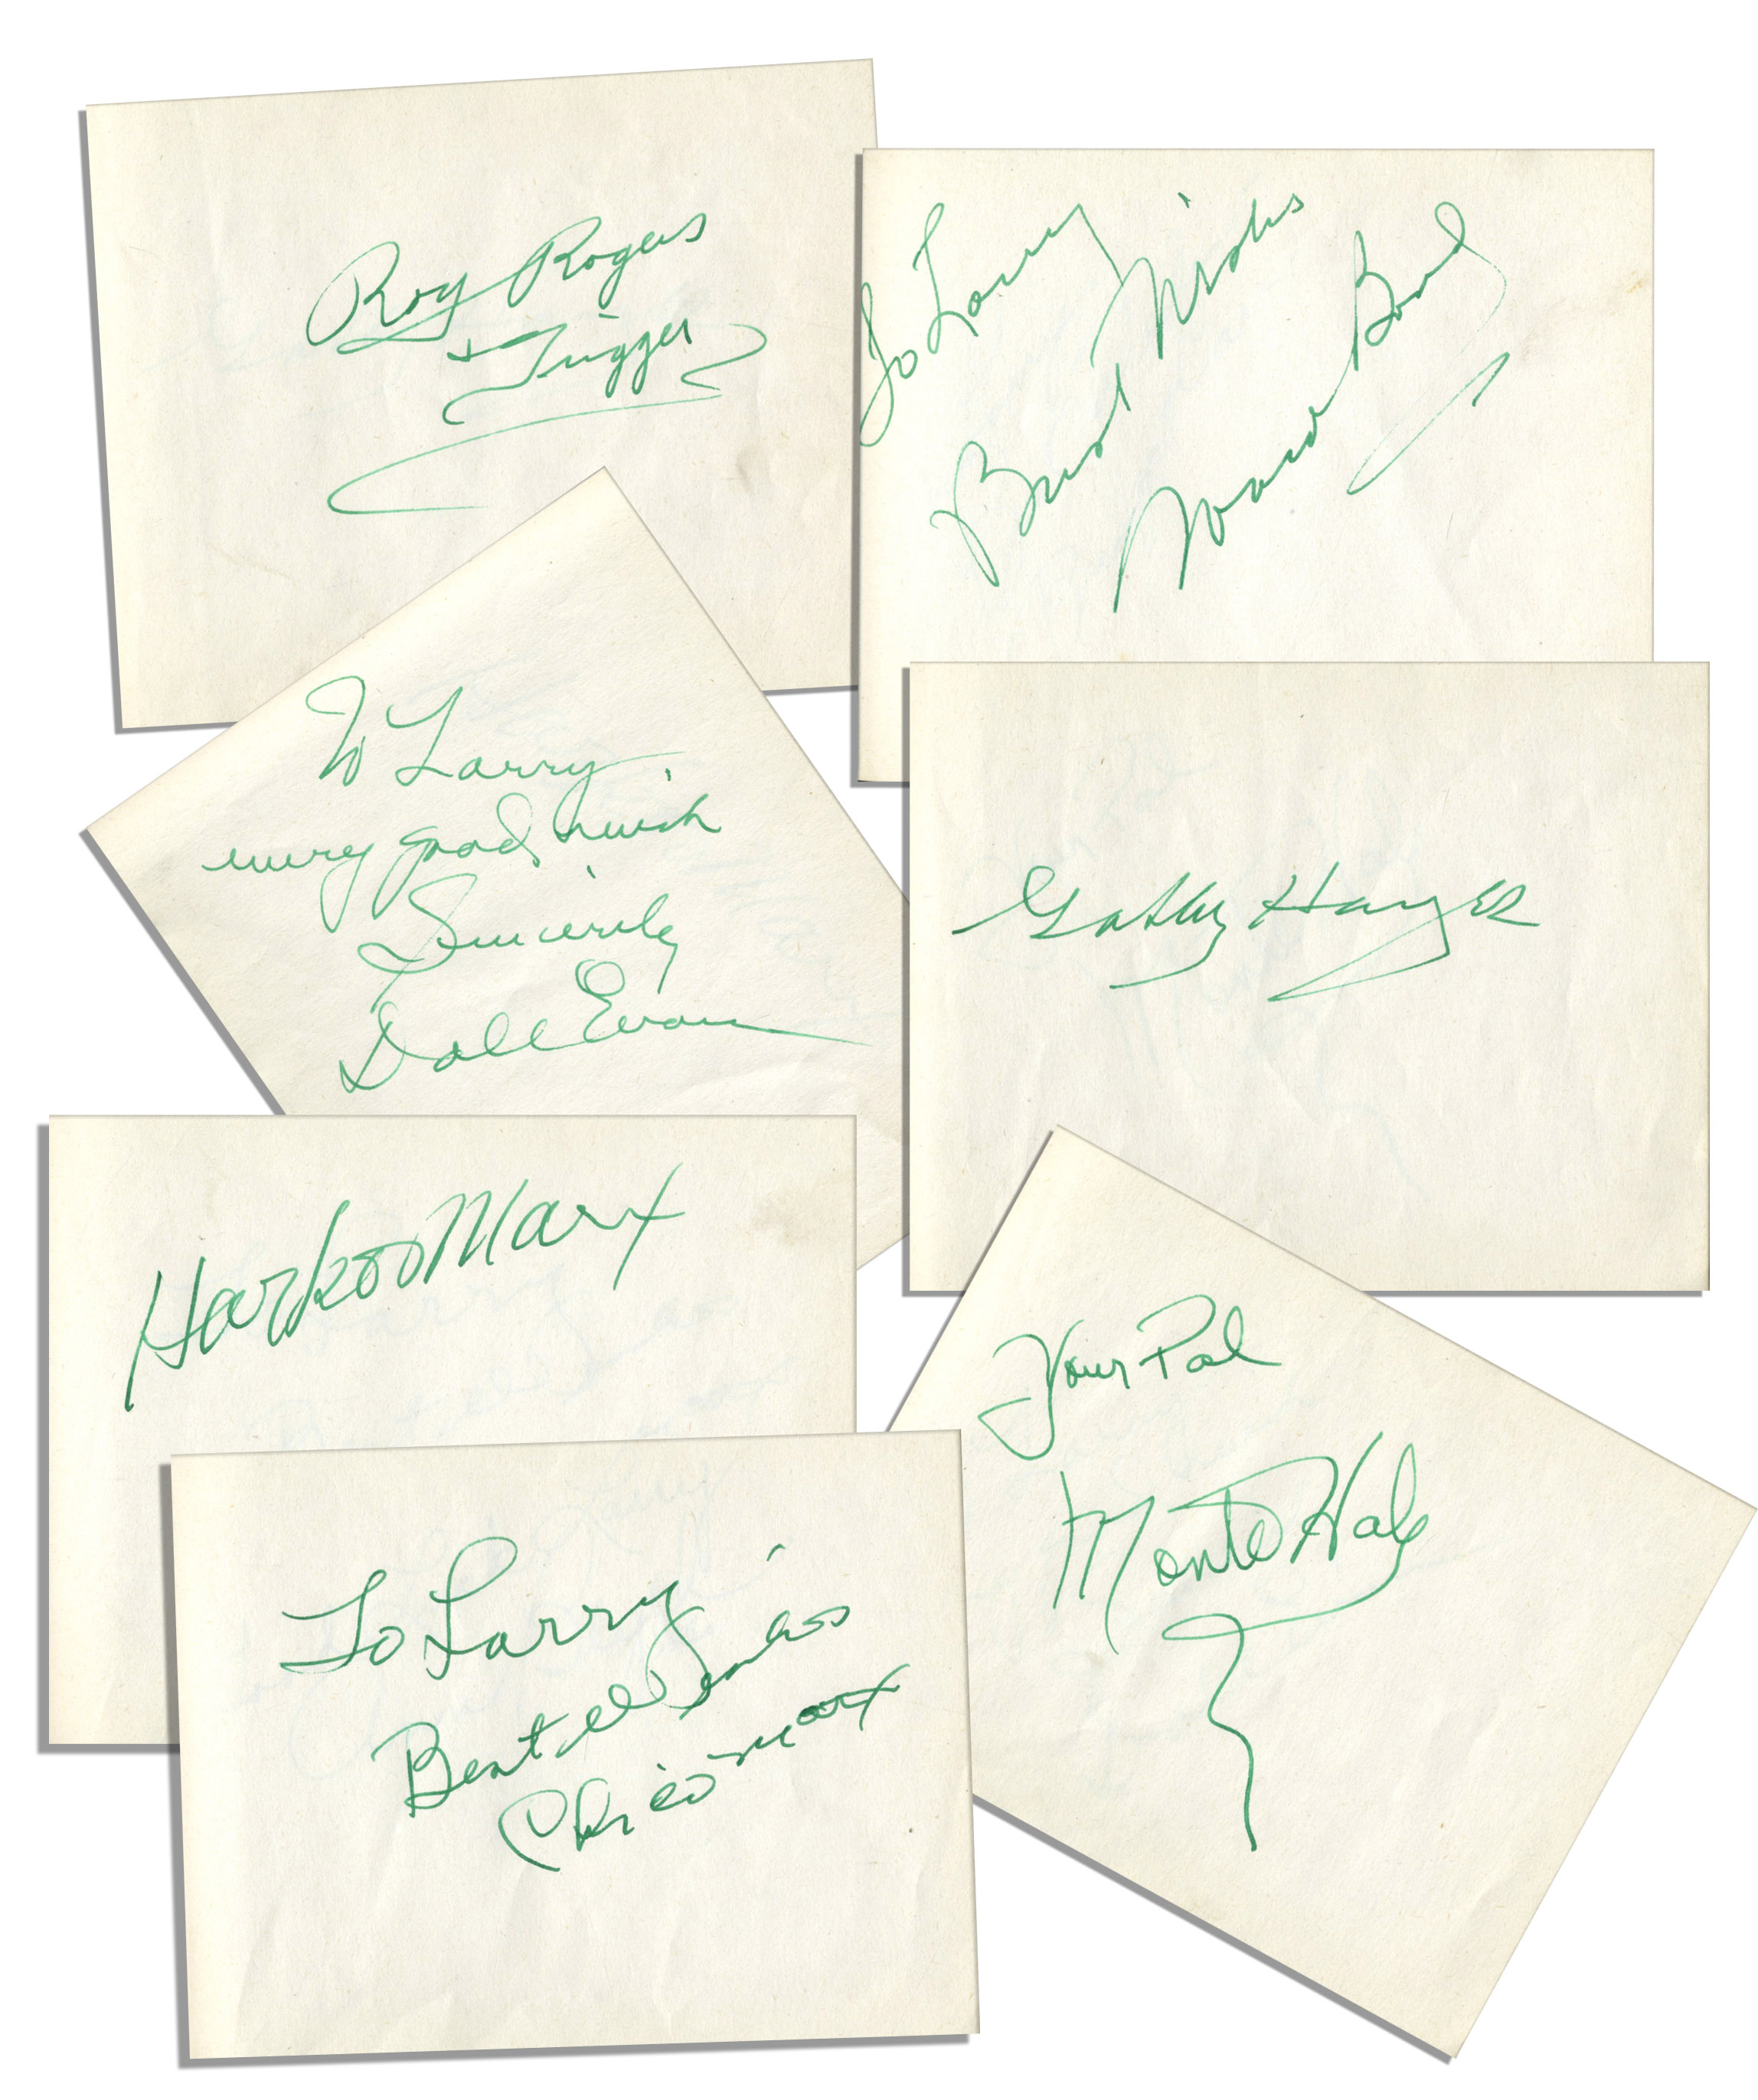 Roy Rogers
+ Trigger
To Larry
Best Wishes
Ward Bond
To Larry
every good wish
Sincerely
Dale Evans
Gabby Hayes
Harpo Marx
Your Pal
Monte Hale
To Larry
Best of
Chico Marx